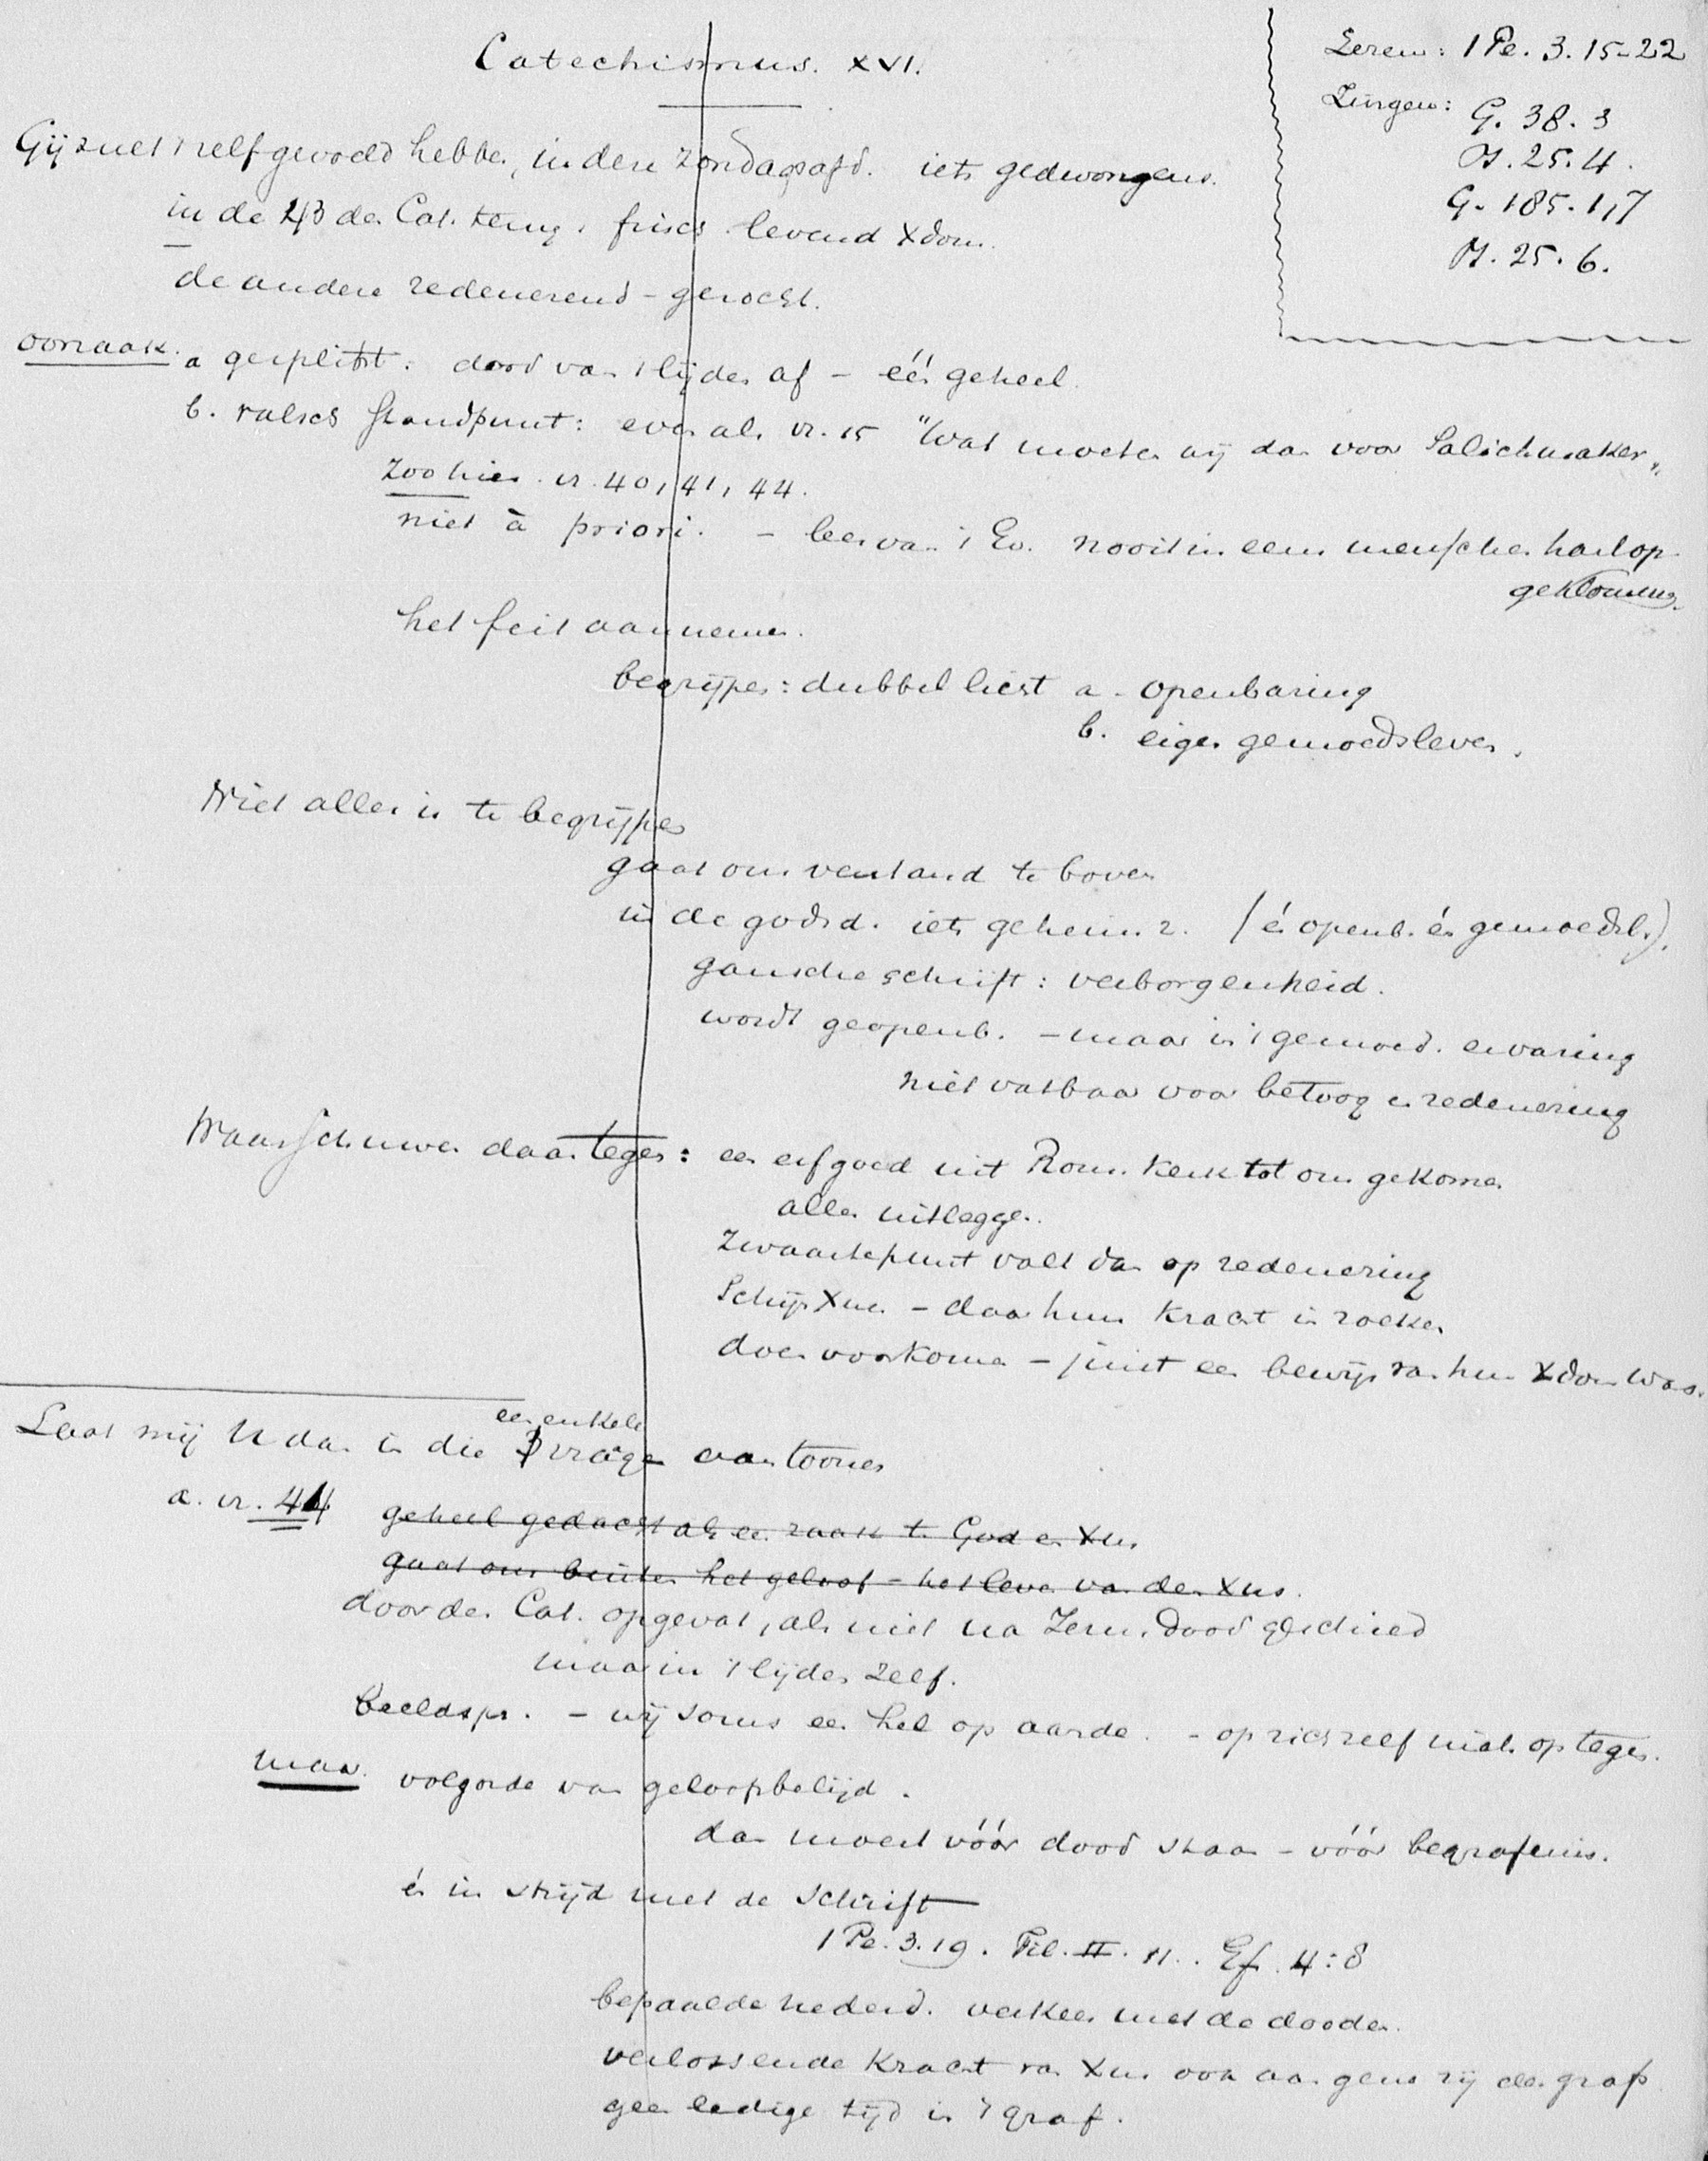 Catechismus. XVI.
Lezen: 1 Pe. 3. 15-22
Zingen: G. 38. 3
Ps. 25. 4.
G. 185. 1,7
Ps. 25. 6.
Gij zult 't zelf gevoeld hebben, in deze Zondagsafd. iets gedwongens.
in de Cat. terug. frisch levend Xdom.
de andere redeneerend - gezocht.
oorzaak. a gesplitst: dood van 't lijden af - één geheel.
b. valsch standpunt: even als vr. 15 "Wat moeten wij dan voor Salichmaker"
Zoo hier vr. 40, 41, 44.
niet à priori. - leer van 't Ev. nooit in eens menschen hart op-
geklommen.
het feit aannemen.
begrijpen: dubbel licht a. openbaring
b. eigen gemoedsleven.
Niet alles is te begrijpen
gaat ons verstand te boven
in de godsd. iets geheimz. (én openb. én gemoedsl.).
gansche schrift: verborgenheid.
wordt geopenb. - maar in 't gemoed. ervaring
niet vatbaar voor betoog en redenering
Waarschuwen daartegen: een erfgoed uit Roms. Kerk tot ons gekomen
alles uitleggen.
Zwaartepunt valt dan op redenering
Schijn Xnen - daar hun kracht in zoeken
doen voorkomen - juist een bewijs van hun Xdom was.
een enkele
Laat mij U dan in die 3 vragen aantoonen
a. vr. 44 geheel gedacht als een zaak t. God en Xus.
gaat om buiten het geloof - het leven van den Xus.
door den Cat. opgevat, als niet na Jezus. dood geschied
maar in 't lijden zelf.
beeldspr. - wij soms een hel op aarde. - op zich zelf niets op tegen.
maar. volgorde van geloofsbelijd.
dan moest vóór dood staan - vóór begrafenis.
én in strijd met de Schrift
1 Pe. 3. 19. Fil. II. 11.. Ef. 4:8
bepaalde nederd. verkeer met de dooden.
verlossende kracht van Xus ook aan gene zij des grafs
geen ledige tijd in 't graf.